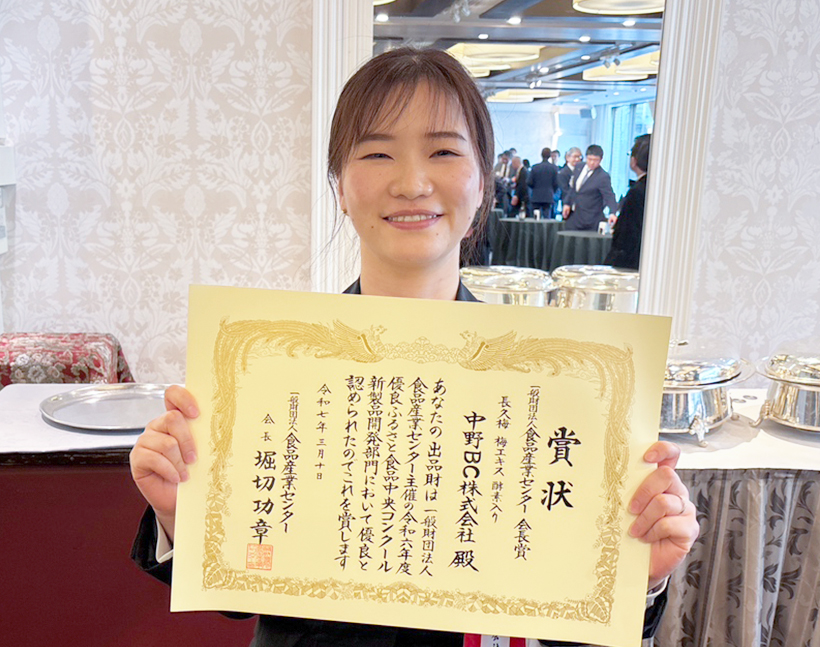 賞状
一般財団法人食品産業センター 会長賞
長久梅 梅エキス 酵素入り
中野BC株式会社 殿
あなたの出品財は 一般財団法人
食品産業センター主催の令和六年度
優良ふるさと食品中央コンクール
新製品開発部門において優良と
認められたのでこれを賞します
令和七年三月十日
一般財団法人食品産業センター
会長 堀切功章